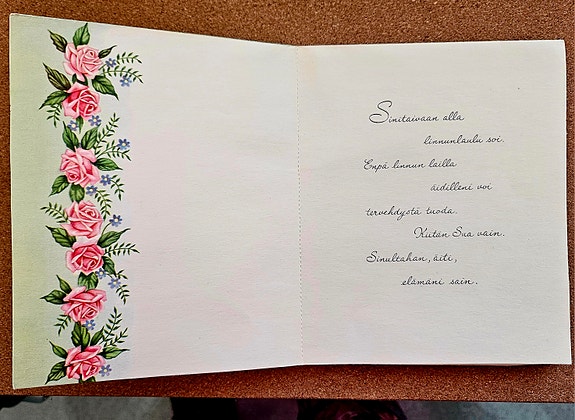 Sinitaivaan alla
linnunlaulu soi.
Enpä linnun lailla
äidilleni voi
tervehdystä tuoda.
Kiitän Sua vain.
Sinultahan, äiti,
elämäni sain.